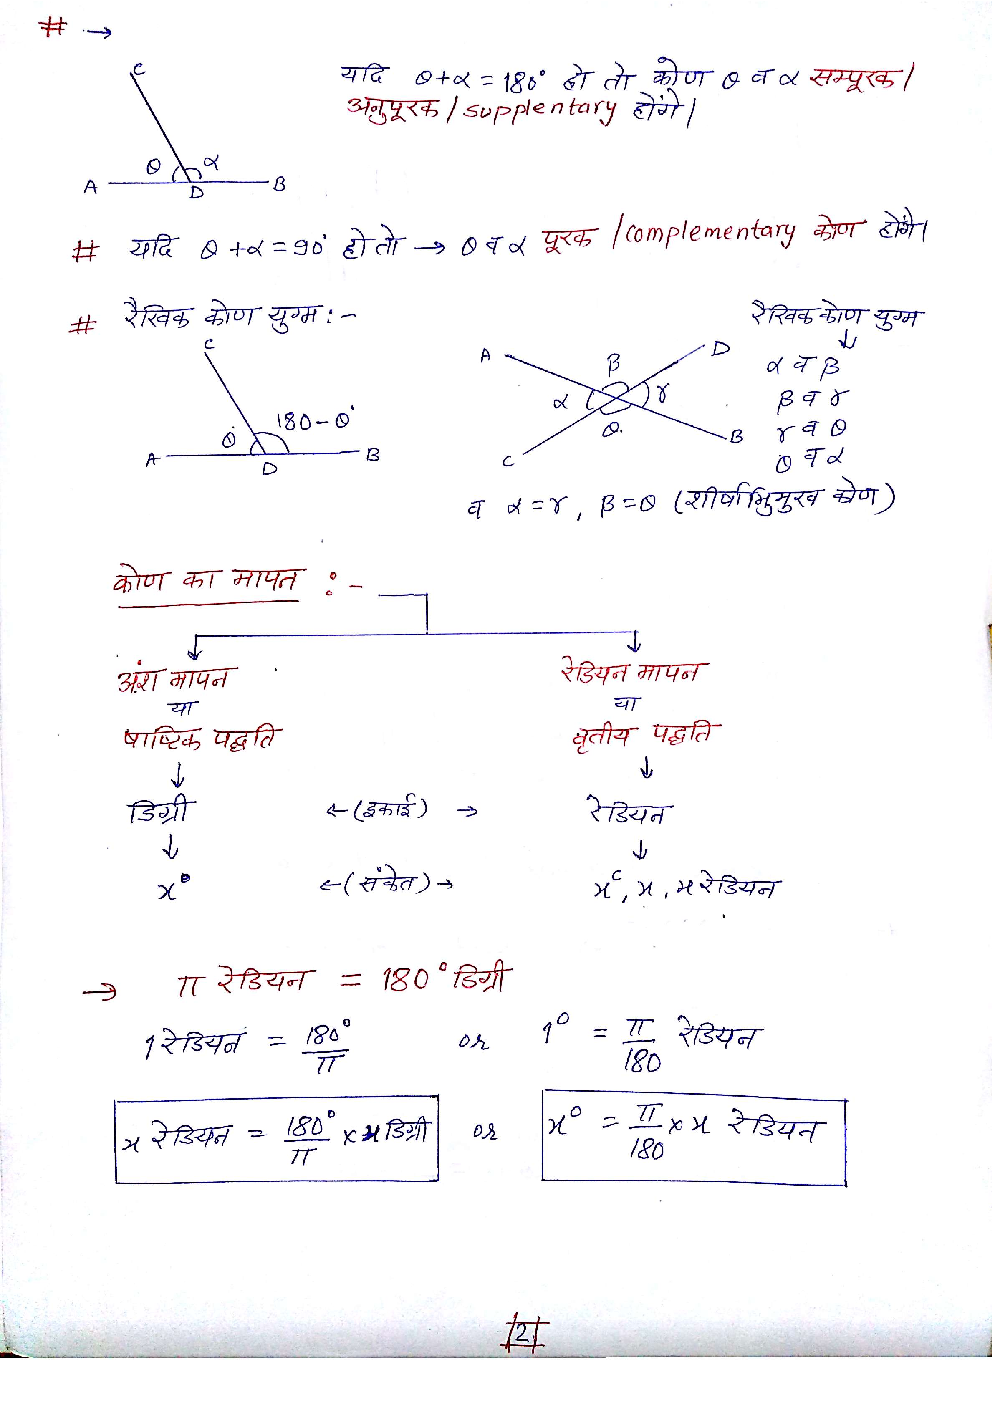 # →
C
यदि θ+α = 180° हो तो कोण θ व α सम्पूरक/
अनुपूरक / supplentary होंगे।
θ α
A D B
# यदि θ+α = 90° हो तो → θ व α पूरक / complementary कोण होंगे।
# रैखिक कोण युग्म :-
C
θ° 180-θ°
A D B
A β D
α γ
θ
C B
रैखिक कोण युग्म
↓
α व β
β व γ
γ व θ
θ व α
व α = γ, β = θ (शीर्षाभिमुख कोण)
कोण का मापन :-
↓ ↓
अंश मापन रेडियन मापन
या या
षाष्टिक पद्धति वृतीय पद्धति
↓ ↓
डिग्री ←(इकाई)→ रेडियन
↓ ↓
x° ←(संकेत)→ x^c, x, x रेडियन
→ π रेडियन = 180° डिग्री
1 रेडियन = 180°/π or 1° = π/180 रेडियन
x रेडियन = 180°/π × x डिग्री or x° = π/180 × x रेडियन
2